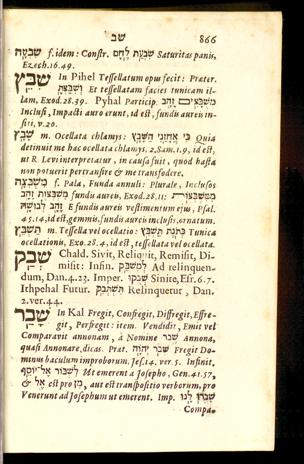 שב 866
שִׂבְעָה f. idem: Constr. שִׂבְעַת לָחֶם Saturitas panis,
Ezech. 16. 49.
שָׁבַץ In Pihel Tessellatum opus fecit: Præter.
וְשִׁבַּצְתָּ Et tessellatam facies tunicam il-
lam, Exod. 28. 39. Pyhal Particip.
מְשֻׁבָּצִים זָהָב Inclusi, Impacti auro erunt, id est, fundis aureis in-
sisti, v. 20.
שָׁבָץ m. Ocellata chlamys: כִּי אֲחָזַנִי הַשָּׁבָץ Quia
detinuit me hæc ocellata chlamys, 2. Sam. 1. 9, id est,
ut R. Levi interpretatur, in causa fuit, quod hasta
non potuerit pertransire & me transfodere.
מִשְׁבְּצָה f. Pala, Funda annuli: Plurale, Inclusos
מִמִּשְׁבְּצוֹת זָהָב fundis aureis, Exod. 28. 11:
זָהָב לְבוּשָׁהּ E fundis aureis vestimentum ejus, Psal.
45. 14, id est, gemmis, fundis aureis inclusis, ornatum.
תַּשְׁבֵּץ m. Tessella vel ocellatio: כְּתֹנֶת תַּשְׁבֵּץ Tunica
ocellationis, Exo. 28. 4, id est, tessellata vel ocellata.
שְׁבַק Chald. Sivit, Reliquit, Remisit, Di-
misit: Infin. לְמִשְׁבַּק Ad relinquen-
dum, Dan. 4. 23. Imper. שְׁבֻקוּ Sinite, Esr. 6. 7.
Ithpehal Futur. תִּשְׁתְּבִק Relinquetur, Dan.
2. ver. 44.
שָׁבַר In Kal Fregit, Confregit, Diffregit, Effre-
git, Perfregit: item. Vendidit, Emit vel
Comparavit annonam, à Nomine שֶׁבֶר Annona,
quasi Annonare, dicas. Præt. שָׁבַר יְהוָֹה Fregit Do-
minus baculum improborum, Jes. 14. ver. 5. Infinit.
לִשְׁבּוֹר אֶל־יוֹסֵף Ut emerent a Josepho, Gen. 41. 57,
& אֶל est pro מִן, aut est transpositio verborum, pro
Venerunt ad Josephum ut emerent. Imp. שִׁבְרוּ לָנוּ
Compa-